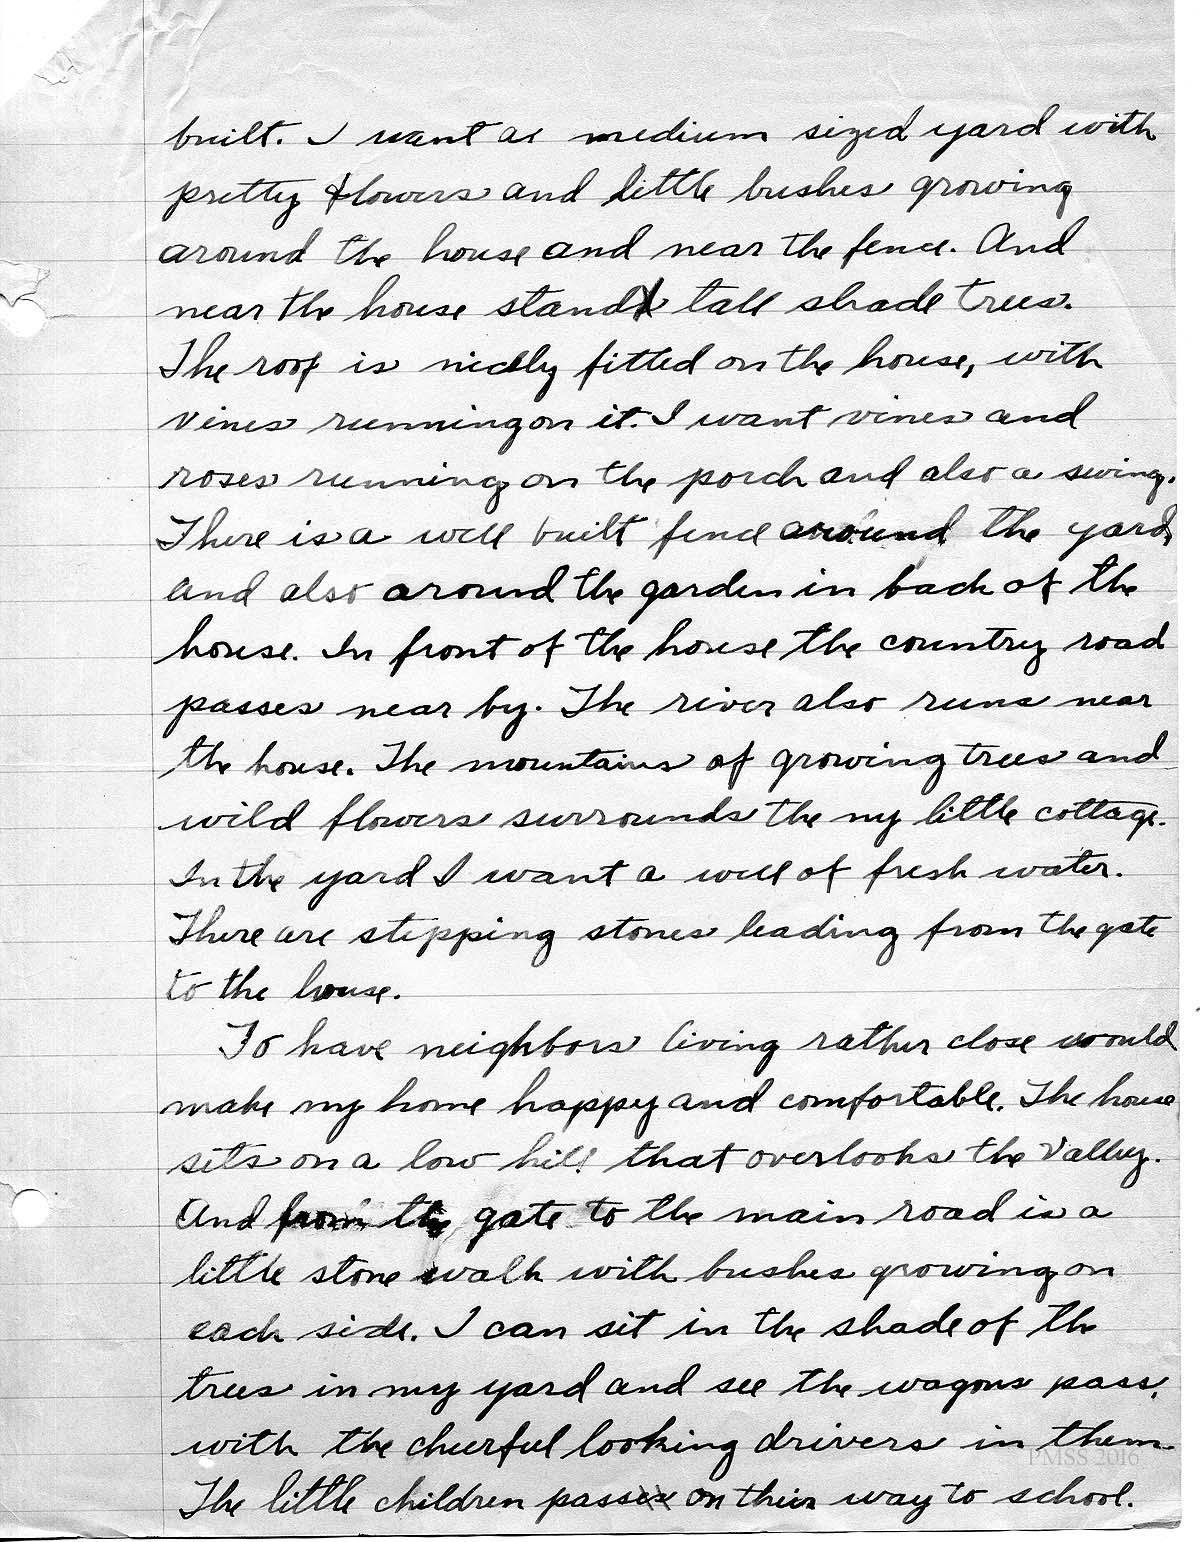 built. I want a medium sized yard with
pretty flowers and little bushes growing
around the house and near the fence. And
near the house stand tall shade trees.
The roof is nicely fitted on the house, with
vines running on it. I want vines and
roses running on the porch and also a swing.
There is a well built fence around the yard,
and also around the garden in back of the
house. In front of the house the country road
passes near by. The river also runs near
the house. The mountains of growing trees and
wild flowers surrounds the my little cottage.
In the yard I want a well of fresh water.
There are stepping stones leading from the gate
to the house.
To have neighbors living rather close would
make my home happy and comfortable. The house
sits on a low hill that overlooks the valley.
And from the gate to the main road is a
little stone walk with bushes growing on
each side. I can sit in the shade of the
trees in my yard and see the wagons pass,
with the cheerful looking drivers in them.
PMSS 2016
The little children pass on their way to school.